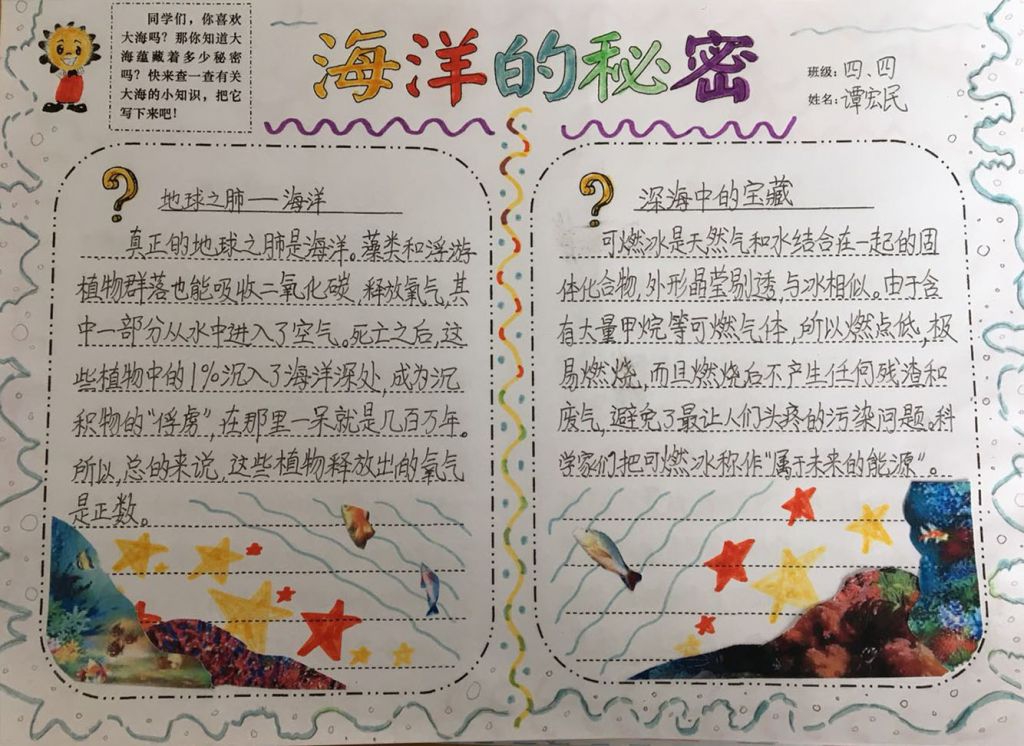 同学们，你喜欢
大海吗？那你知道大
海蕴藏着多少秘密
吗？快来查一查有关
大海的小知识，把它
写下来吧！
海洋的秘密
班级：四、四
姓名：谭宏民
？ 地球之肺——海洋
真正的地球之肺是海洋。藻类和浮游
植物群落也能吸收二氧化碳，释放氧气，其
中一部分从水中进入了空气。死亡之后，这
些植物中的1%沉入了海洋深处，成为沉
积物的“俘虏”，在那里一呆就是几百万年。
所以，总的来说，这些植物释放出的氧气
是正数。
？ 深海中的宝藏
可燃冰是天然气和水结合在一起的固
体化合物，外形晶莹剔透，与冰相似。由于含
有大量甲烷等可燃气体，所以燃点低，极
易燃烧，而且燃烧后不产生任何残渣和
废气，避免了最让人们头疼的污染问题。科
学家们把可燃冰称作“属于未来的能源”。